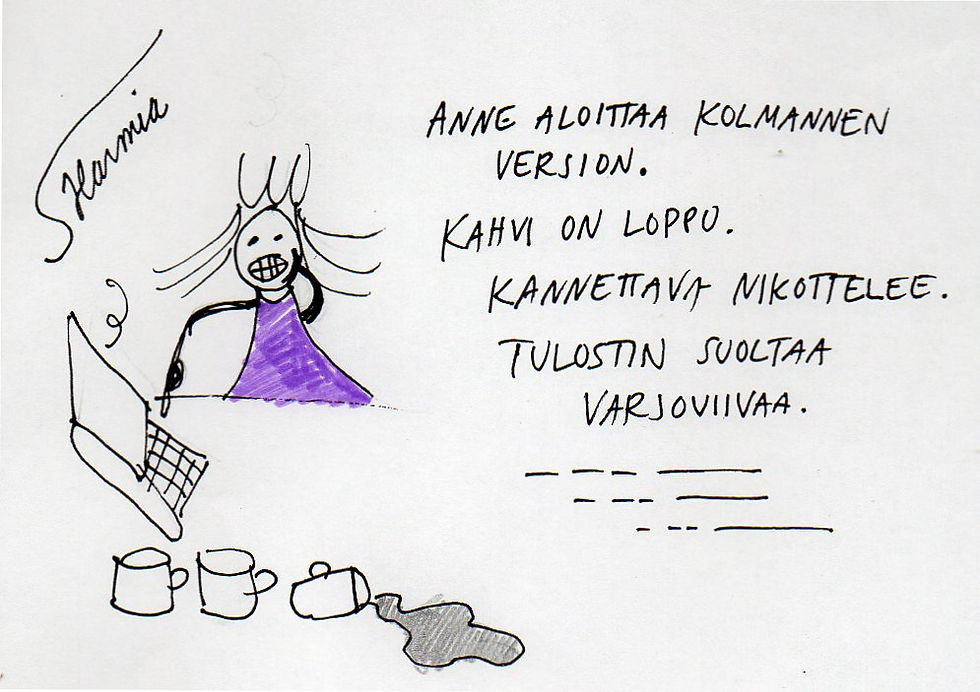 Harmia
ANNE ALOITTAA KOLMANNEN
VERSION.
KAHVI ON LOPPU.
KANNETTAVA NIKOTTELEE.
TULOSTIN SUOLTAA
VARJOVIIVAA.